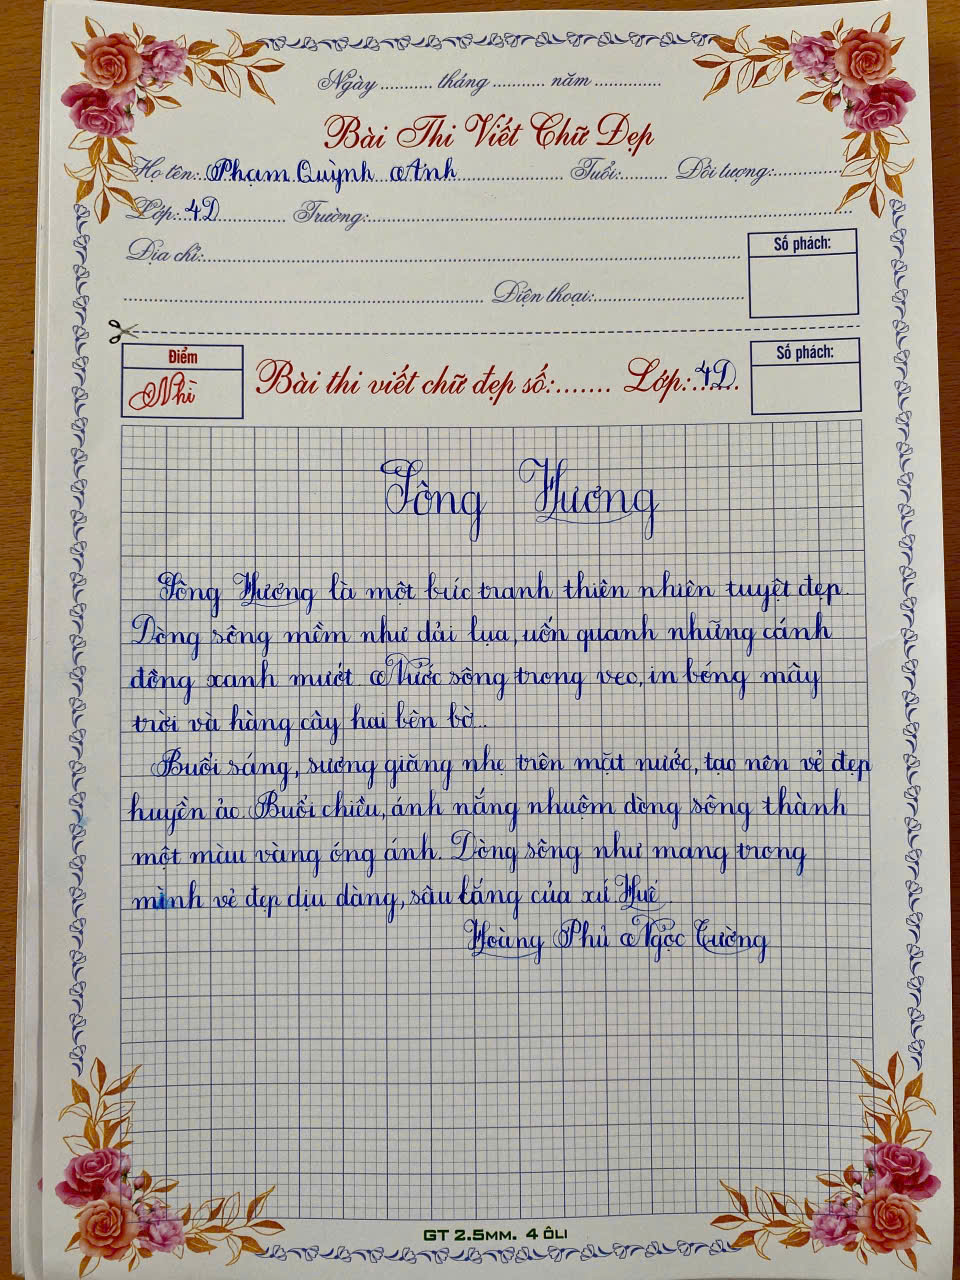 Ngày ........... tháng ........... năm ..............
Bài Thi Viết Chữ Đẹp
Họ tên: Phạm Quỳnh Anh Tuổi:.......... Đối tượng:..............
Lớp: 4D Trường:..............
Địa chỉ:..............
Số phách:
Điện thoại:..............
Điểm
Nhì
Bài thi viết chữ đẹp số:....... Lớp: 4D
Số phách:
Sông Hương
Sông Hương là một bức tranh thiên nhiên tuyệt đẹp.
Dòng sông mềm như dải lụa, uốn quanh những cánh
đồng xanh mướt. Nước sông trong veo, in bóng mây
trời và hàng cây hai bên bờ..
Buổi sáng, sương giăng nhẹ trên mặt nước, tạo nên vẻ đẹp
huyền ảo. Buổi chiều, ánh nắng nhuộm dòng sông thành
một màu vàng óng ánh. Dòng sông như mang trong
mình vẻ đẹp dịu dàng, sâu lắng của xứ Huế.
Hoàng Phủ Ngọc Tường
GT 2.5MM. 4 ÔLI